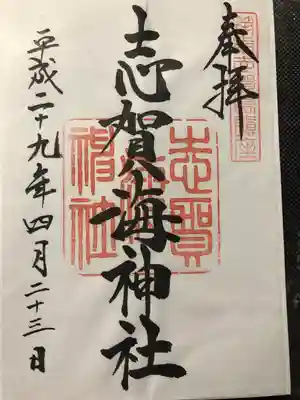 奉拝
志賀海神社
平成二十九年四月二十三日
志賀海神社